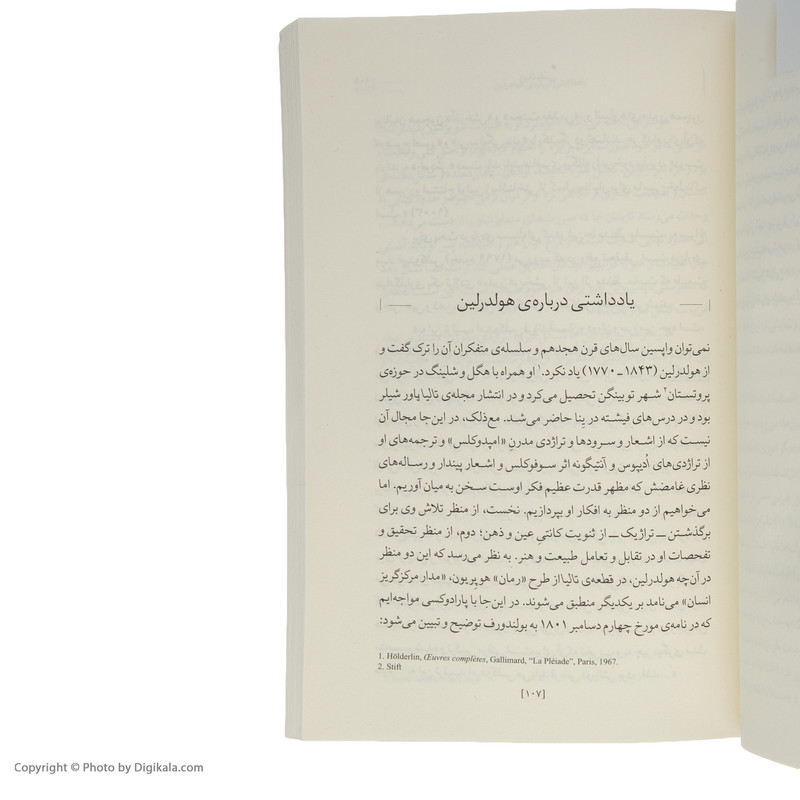 یادداشتی درباره‌ی هولدرلین
نمی‌توان واپسین سال‌های قرن هجدهم و سلسله‌ی متفکران آن را ترک گفت و
از هولدرلین (۱۸۴۳ ـ ۱۷۷۰) یاد نکرد.۱ او همراه با هگل و شلینگ در حوزه‌ی
پروتستان۲ شهر توبینگن تحصیل می‌کرد و در انتشار مجله‌ی تالیا یاور شیلر
بود و در درس‌های فیشته در ینا حاضر می‌شد. مع‌ذلک، در این‌جا مجال آن
نیست که از اشعار و سرودها و تراژدی مدرنِ «امپدوکلس» و ترجمه‌های او
از تراژدی‌های اُدیپوس و آنتیگونه اثر سوفوکلس و اشعار پیندار و رساله‌های
نظری غامضش که مظهر قدرت عظیم فکر اوست سخن به میان آوریم. اما
می‌خواهیم از دو منظر به افکار او بپردازیم. نخست، از منظر تلاش وی برای
برگذشتن ــ تراژیک ــ از ثنویت کانتیِ عین و ذهن؛ دوم، از منظر تحقیق و
تفحصات او در تقابل و تعامل طبیعت و هنر. به نظر می‌رسد که این دو منظر
در آن‌چه هولدرلین، در قطعه‌ی تالیا از طرح «رمان» هوپریون، «مدار مرکزگریز
انسان» می‌نامد بر یکدیگر منطبق می‌شوند. در این‌جا با پارادوکسی مواجه‌ایم
که در نامه‌ی مورخ چهارم دسامبر ۱۸۰۱ به بولِندورف توضیح و تبیین می‌شود:
1. Hölderlin, Œuvres complètes, Gallimard, “La Pléiade”, Paris, 1967.
2. Stift
[۱۰۷]
Copyright © Photo by Digikala.com